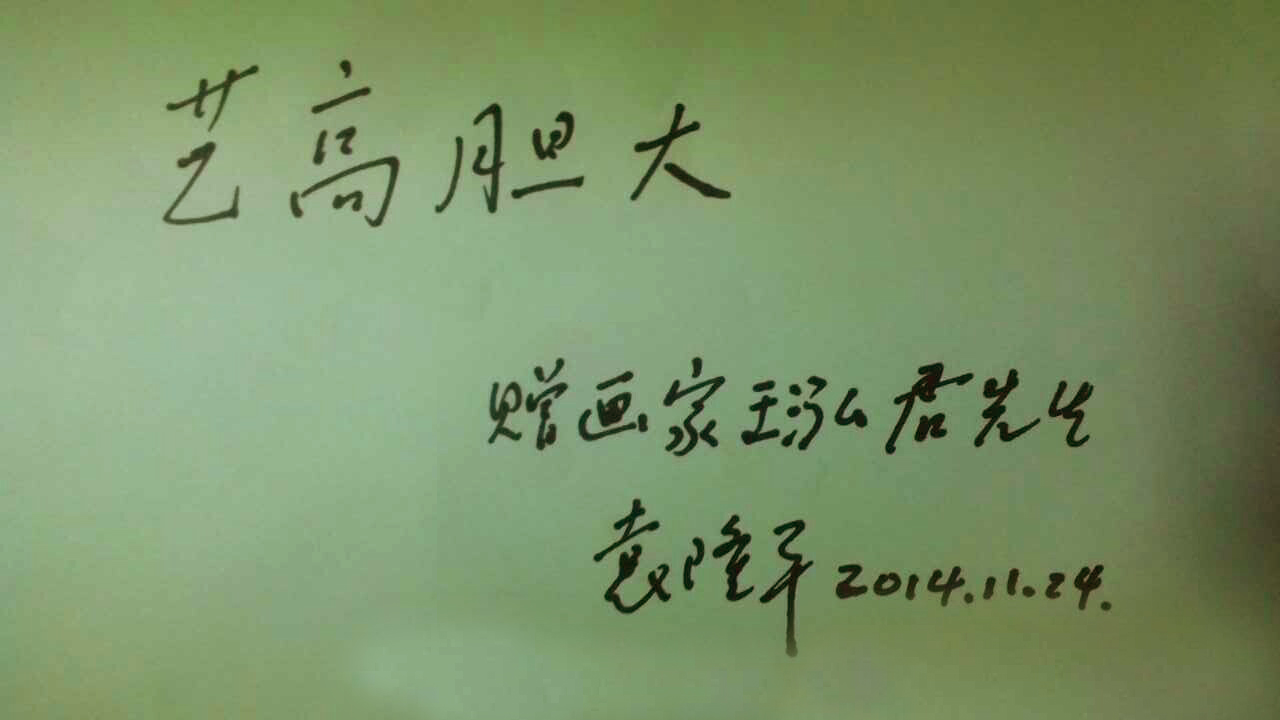 艺高胆大
赠画家王泓君先生
袁隆平 2014.11.24.